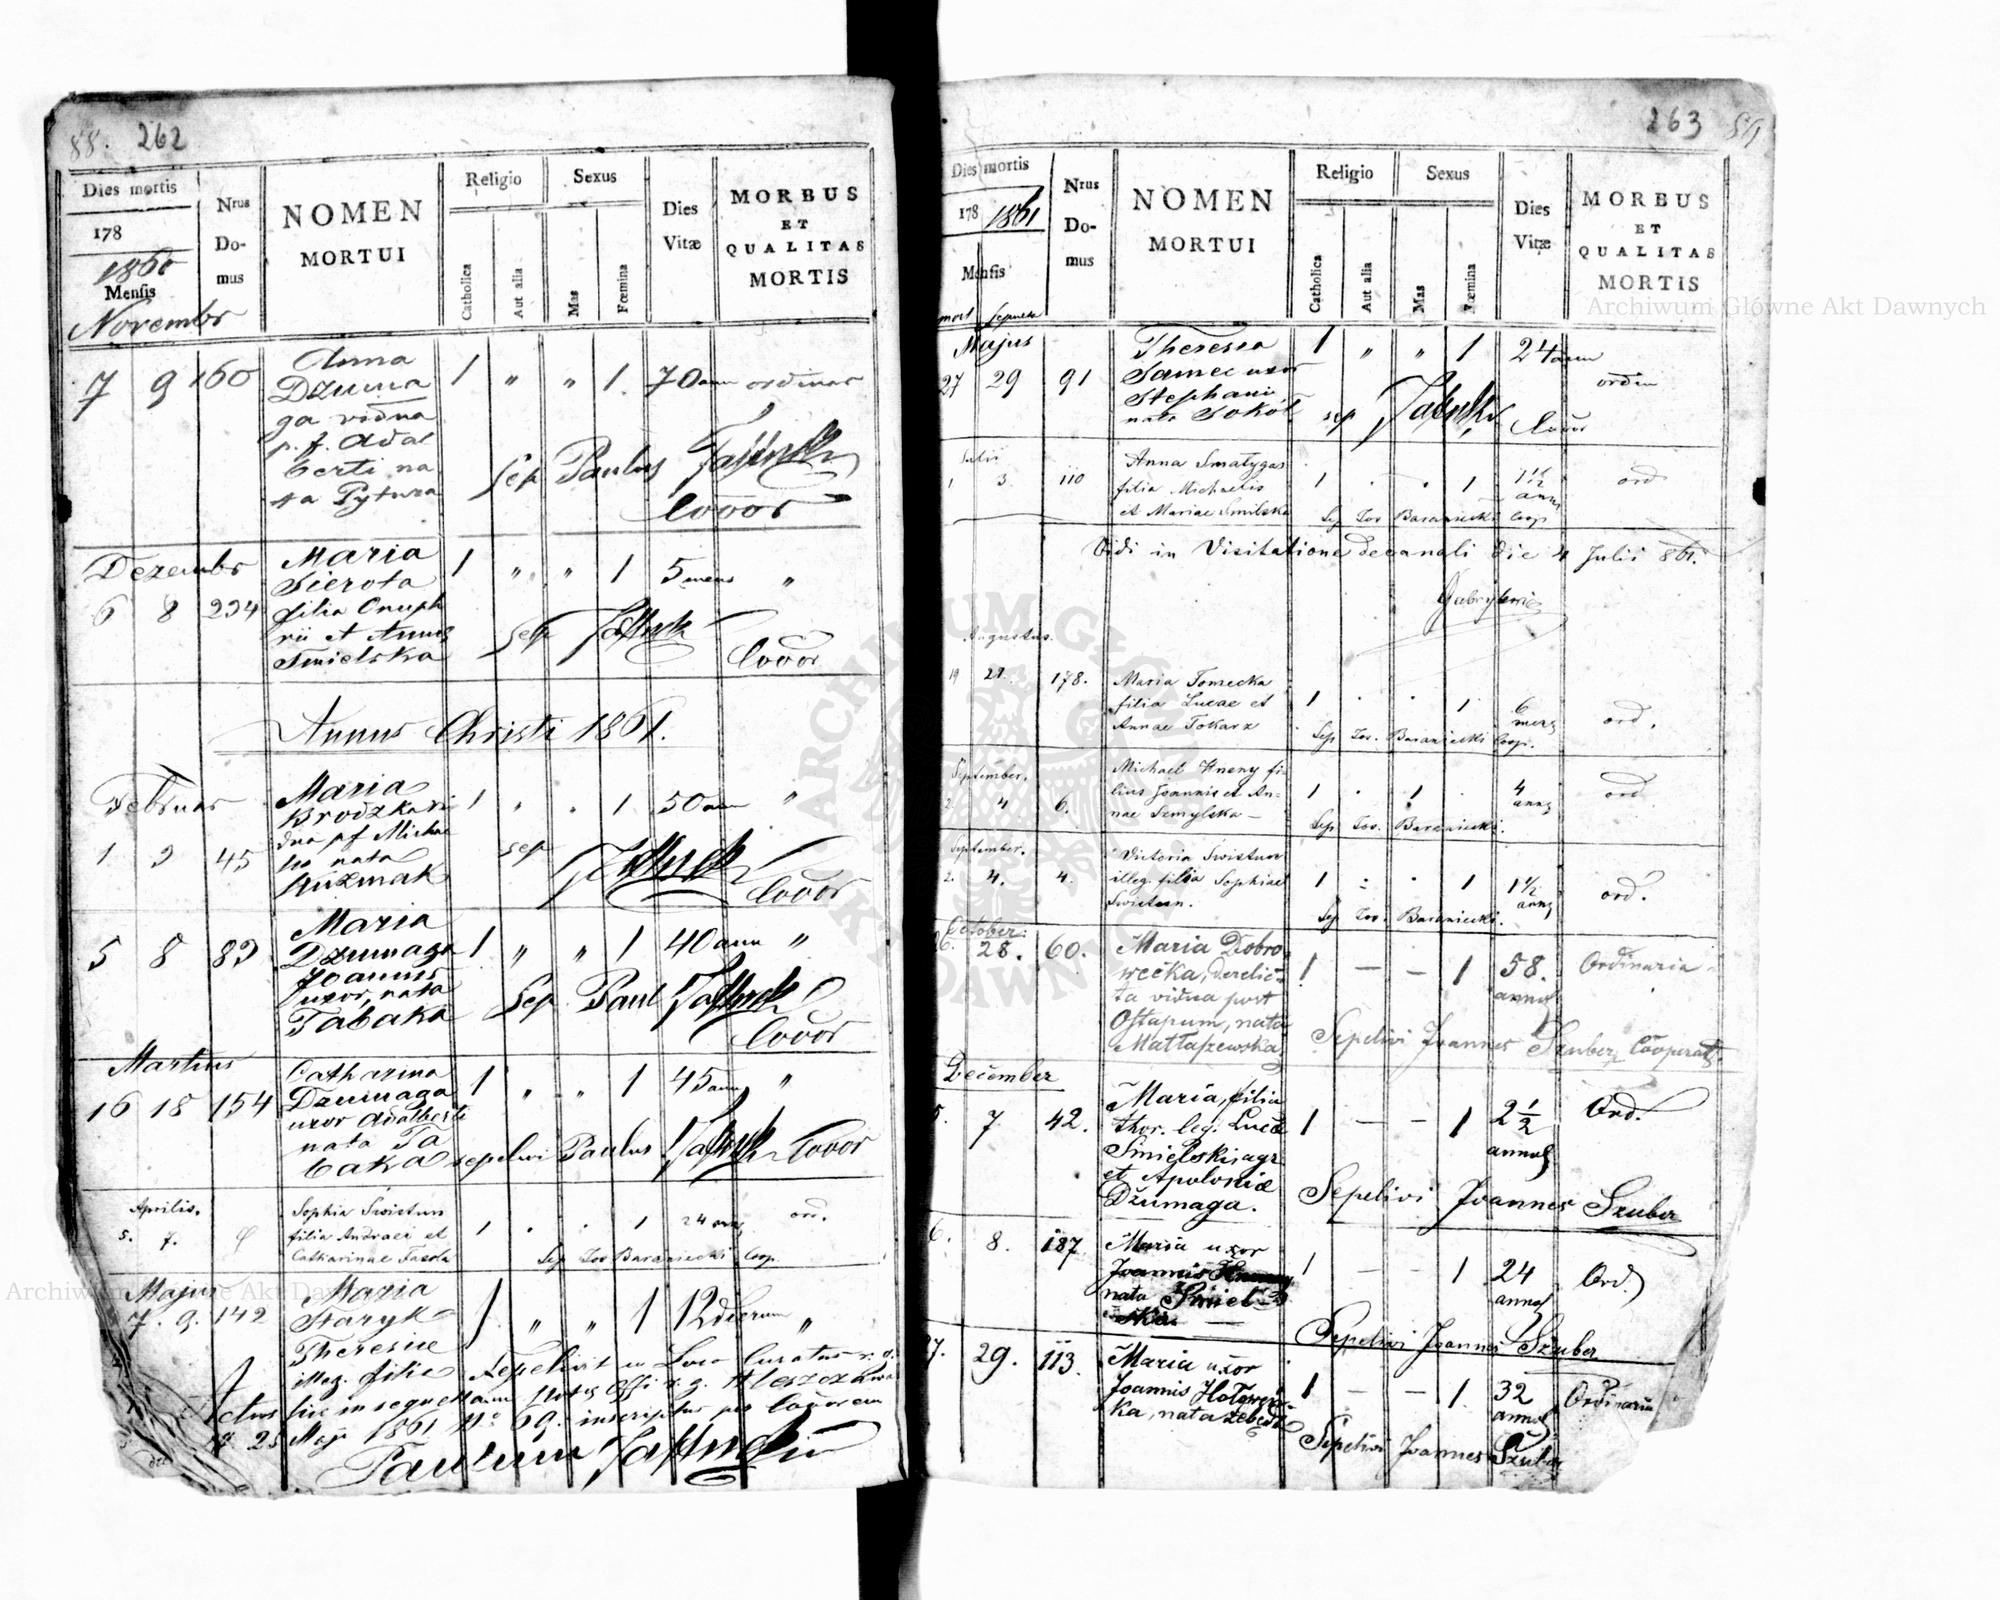 88. 262
Dies mortis
178
1860
Mensis
November
Nrus Domus
NOMEN
MORTUI
Religio
Catholica
Aut alia
Sexus
Mas
Fœmina
Dies
Vitæ
MORBUS
ET
QUALITAS
MORTIS
7 9 160 Anna 1 " " 1 70 ann ordinar
Dzuma
ga vidua
p. f. Adal
berti na
ta Pytura
Sep Paulus
Coöor
Dezembr
6 8 234 Maria 1 " " 1 5 mens "
Sierota
filia Onuph
rii et Annæ
Smielska
Sep
Coöor
Annus Christi 1861.
Februar
1 3 45 Maria 1 " " 1 50 ann "
Brodzka vi
dua pf Micha
nata
Kuzmak
sep
Coöor
5 8 83 Maria 1 " " 1 40 ann "
Dzumaga
Joannis
uxor, nata
Tabaka
Sep Paul
Coöor
Martius
16 18 154 Catharina 1 " " 1 45 ann "
Dzumaga
uxor Adalberti
nata Ta
baka
sepelivi Paulus Coöor
Aprilis.
5. 7. 9 Sophia Swistun 1 . . 1 24 ann ord.
filia Andraei et
Catharinae
Sep Jos Baraniecki Coop
Majus
7. 9. 142 Maria 1 " " 1 12 dierum "
Staryk
Theresiæ
illeg. filia Sepelivit in Loco Curatus r. g.
Actus sive in sequelam
23 Maji 1861 No 69. inscriptus per Coöorem
Paulum
263 89
Dies mortis
178 1861
Mensis
mort sepult
Nrus Domus
NOMEN
MORTUI
Religio
Catholica
Aut alia
Sexus
Mas
Fœmina
Dies
Vitæ
MORBUS
ET
QUALITAS
MORTIS
Majus
27 29 91 Theresia 1 " " 1 24 ann ordin
Samec uxor
Stephani,
nata Sokoł
sep Coöor
Julii
1 3. 110 Anna Smatygas 1 . . 1 1 1/2 anni ord
filia Michaelis
et Mariae Smilska
Sep Jos Baraniecki Coop
Vidi in Visitatione decanali die 4 Julii 861.
Augustus.
19 21. 178. Maria Tomecka 1 . . 1 6 mens ord.
filia Lucae et
Annae Tokarz
Sep Jos. Baraniecki Coop.
September.
2. 4 6. Michael Hneny fi- 1 . 1 . 4 anns ord
lius Joannis et An-
nae Szmylska —
Sep Jos. Baraniecki.
September.
2. 4. 4. Victoria Swistun 1 . . 1 1 1/2 anns ord.
illeg. filia Sophiae
Swistun.
Sep Jos. Baraniecki.
October.
26. 28. 60. Maria Dobro- 1 — — 1 58. annos Ordinaria
wečka, derelic-
ta vidua post
Ostapum, nata
Matłaszewska
Sepelivi Joannes Szuber Cooperat
December
5. 7. 42. Maria, filia 1 — — 1 2 1/2 annos Ord.
thor. leg. Lucæ
Smielski agr
et Apoloniæ
Džumaga.
Sepelivi Joannes Szuber
6. 8. 187. Maria uxor 1 — — 1 24 annos Ord.
Joannis
nata Smiel-
ska. —
Sepelivi Joannes Szuber
27. 29. 113. Maria uxor 1 — — 1. 32 annos Ordinaria
Joannis
ka, nata
Sepelivi Joannes Szuber
Archiwum Główne Akt Dawnych
Archiwum Główne Akt Dawnych
ARCHIWUM GŁÓWNE AKT DAWNYCH